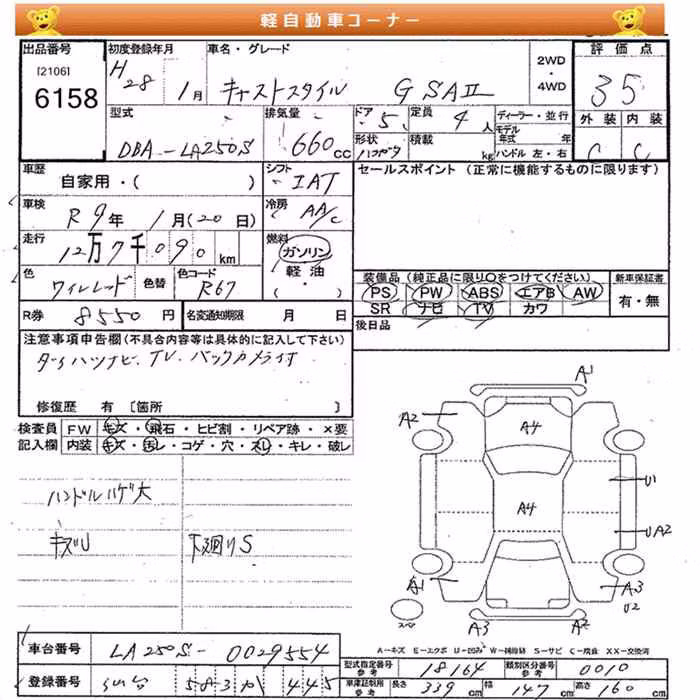 軽自動車コーナー
出品番号 初度登録年月 車名・グレード 2WD ・ 4WD 評価点
[2106] 6158 H28 1月 キャストスタイル G SAⅡ 35
型式 排気量 ドア 5 定員 4人 ディーラー・並行 外装 内装
DBA-LA250S 660cc 形状 積載 kg モデル年式 年 ハンドル 左・右 C C
車歴 シフト セールスポイント (正常に機能するものに限ります)
自家用・( ) IAT
車検 R9年 1月(20日) 冷房 AA/C
走行 12万7千090km 燃料 ガソリン
軽油・( )
色 ワインレッド 色替 色コード R67
装備品(純正品に限り○をつけてください) 新車保証書
PS PW ABS エアB AW 有・無
SR ナビ TV カワ
R券 8550円 名変通知期限 月 日 後日品
注意事項申告欄(不具合内容等は具体的に記入して下さい)
ダイハツナビ、TV、バックカメラ付
修復歴 有 [箇所 ]
検査員 FW キズ・飛石・ヒビ割・リペア跡・×要
記入欄 内装 キズ・汚レ・コゲ・穴・スレ・キレ・破レ
ハンドルハゲ大
キズU 下廻りS
A1
A2
A4
U1
A4
UA2
A1 A3
U2
スペア
A3 A2
A-キズ E-エクボ U-凹み W-補修跡 S-サビ C-腐食 XX-交換済
車台番号 LA250S-0029554
型式指定番号 参考 18164 類別区分番号 参考 0010
登録番号 583 445
車庫証明用 参考 長さ 339cm 幅 147cm 高さ 160cm